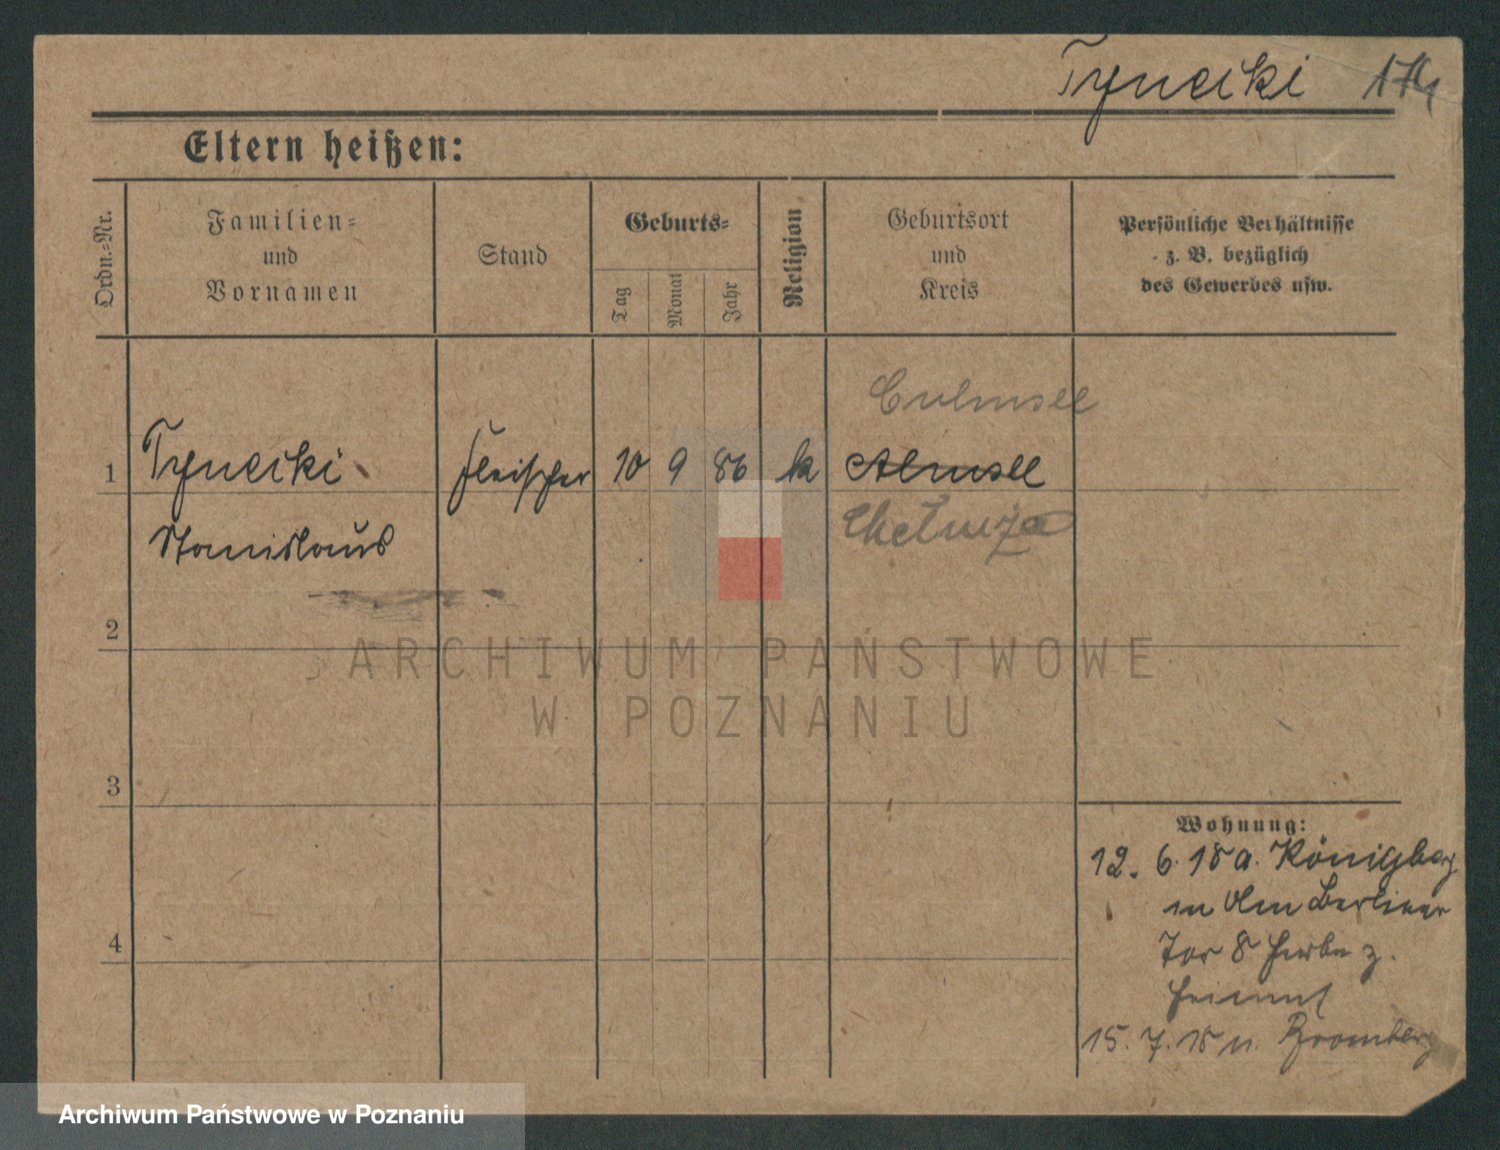 Tyneiki 174
Eltern heißen:
Ordn.=Nr.
Familien=
und
Vornamen
Stand
Geburts=
Tag
Monat
Jahr
Religion
Geburtsort
und
Kreis
Persönliche Verhältnisse
z. B. bezüglich
des Gewerbes usw.
Culmsee
1 Tyneiki Fleischer 10 9 86 k Almsee
Stanislaus
Chełmża
2
3
4
Wohnung:
12. 6. 18 a. Königsberg
Berliner
Tor 8 z.
Heimat
15. 7. 18 n. Bromberg
ARCHIWUM PAŃSTWOWE
W POZNANIU
Archiwum Państwowe w Poznaniu